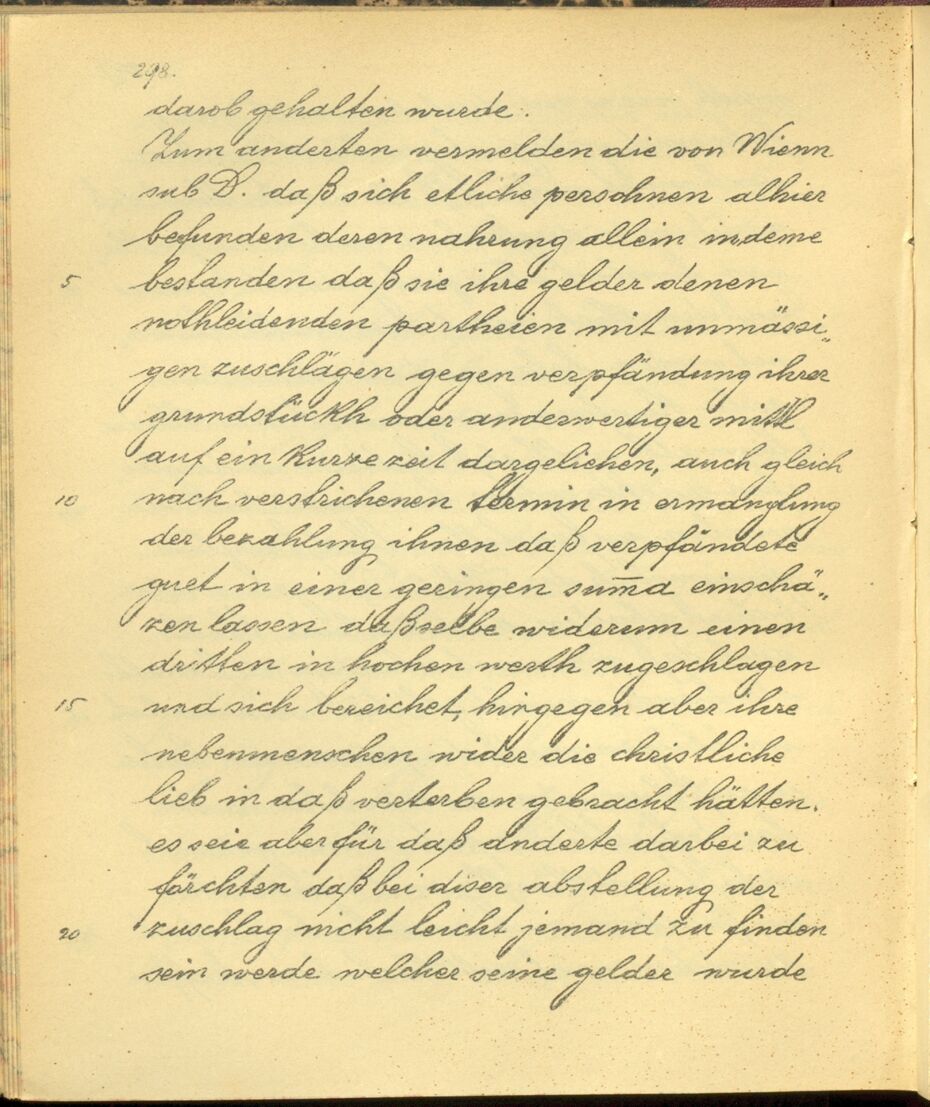 298.
darob gehalten wurde.
Zum anderten vermelden die von Wienn
sub D. daß sich etliche persohnen alhier
befunden deren nahrung allein in deme
5 bestanden daß sie ihre gelder denen
nothleidenden partheien mit unmässi„
gen zuschlägen gegen verpfändung ihrer
grundstückh oder anderwertiger mittl
auf ein kurze zeit dargeliehen, auch gleich
10 nach verstrichenen termin in ermanglung
der bezahlung ihnen daß verpfändete
guet in einer geringen sum̅a einschä„
zen lassen daßselbe widerum einen
dritten in hochen werth zugeschlagen
15 und sich bereichet, hingegen aber ihre
nebenmenschen wider die christliche
lieb in daß verterben gebracht hätten.
es seie aber für daß anderte darbei zu
förchten daß bei diser abstellung der
20 zuschlag nicht leicht jemand zu finden
sein werde welcher seine gelder wurde